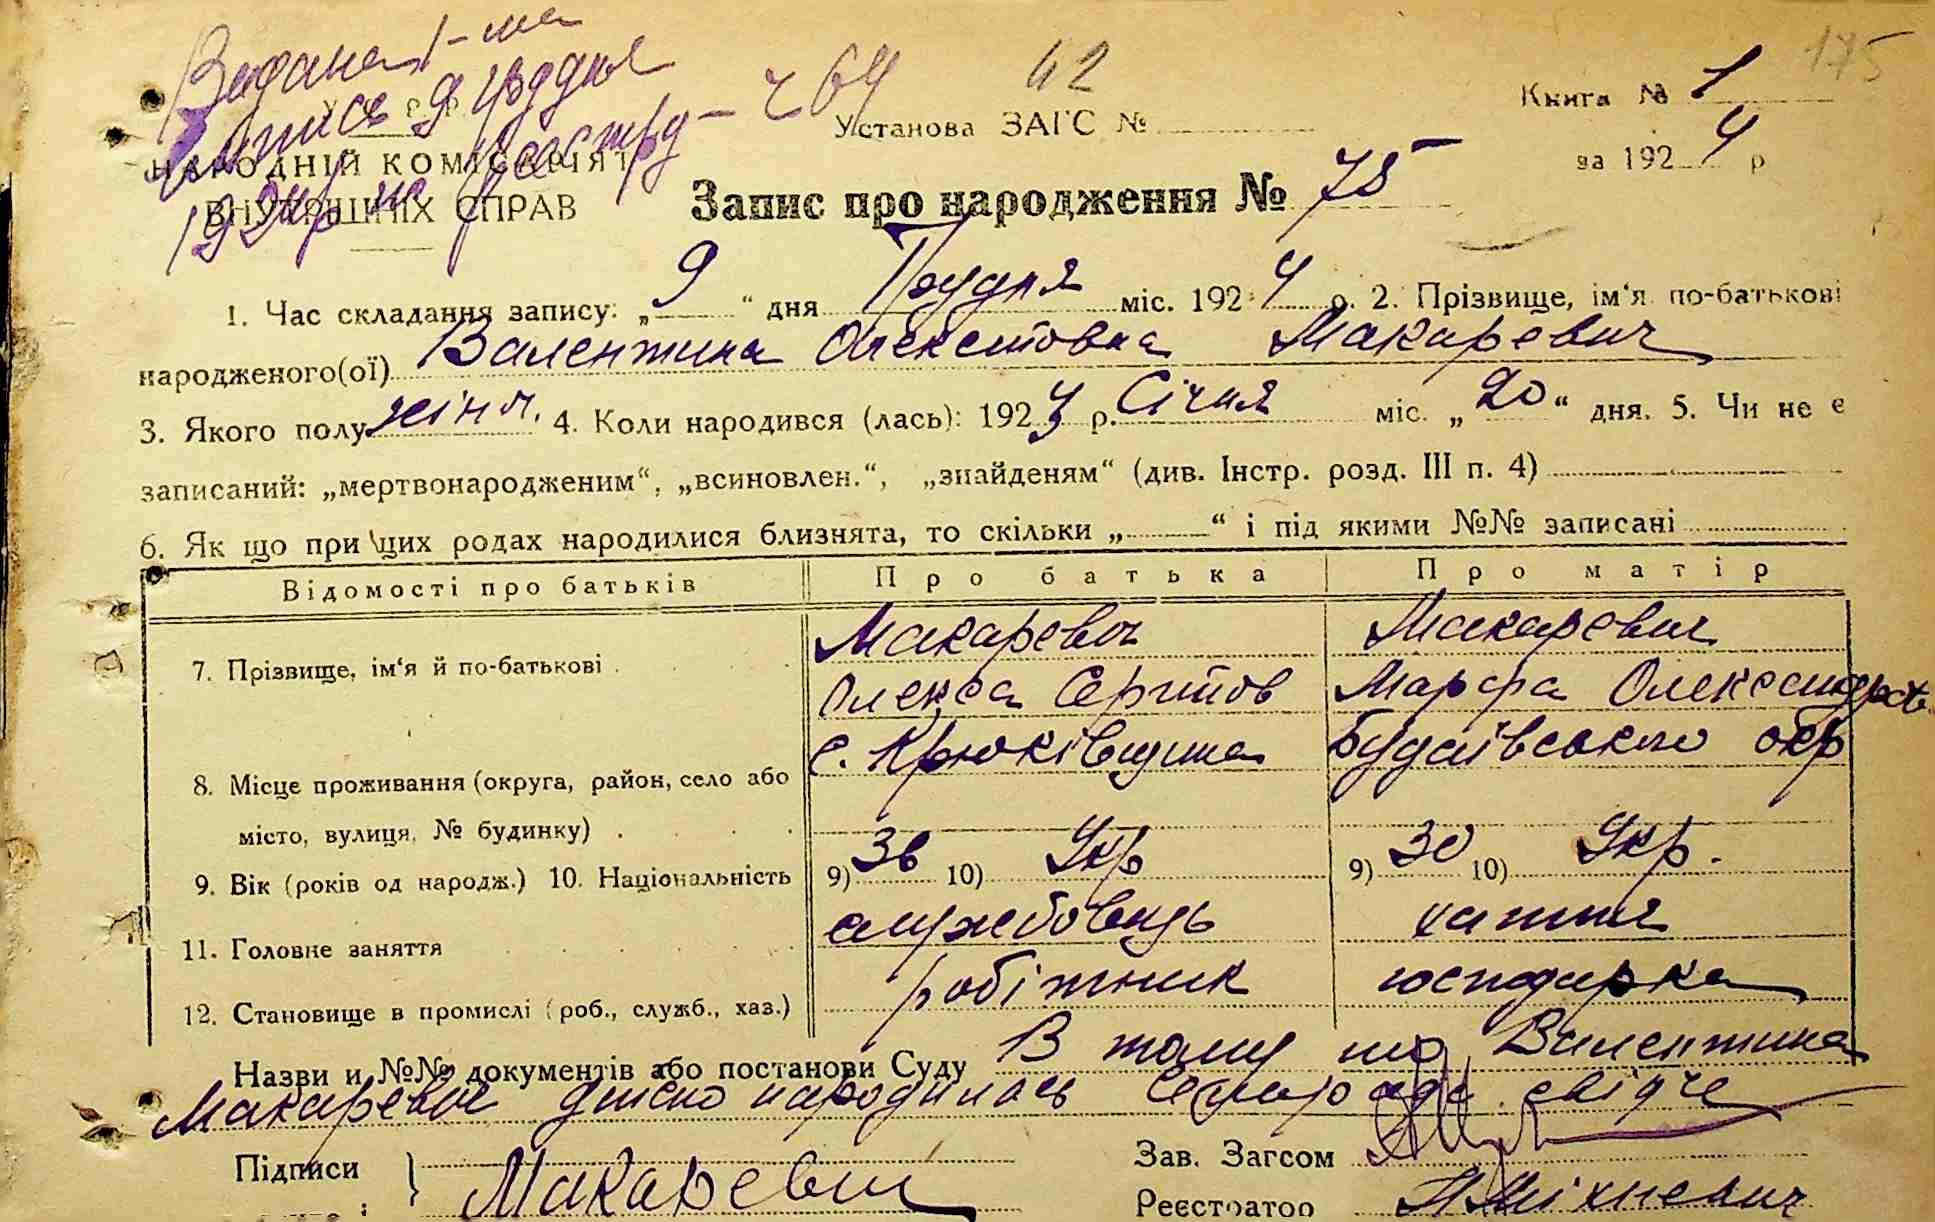 Видана 1-ша
У. С. Р. Р.
випись 9 грудня
НАРОДНІЙ КОМІСАРІЯТ
1924 р по реєстру – ч 64
ВНУТРІШНІХ СПРАВ
42
175
Установа ЗАГС №
Книга № 1
за 1924 р
Запис про народження № 75
1. Час складання запису: „9“ дня Грудня міс. 1924 р. 2. Прізвище, ім‘я по-батькові
народженого(ої) Валентина Олексіївна Макаревич
3. Якого полу жіноч. 4. Коли народився (лась): 1924 р. Січня міс. „20“ дня. 5. Чи не є
записаний: „мертвонародженим“, „всиновлен.“, „знайденям“ (див. Інстр. розд. III п. 4)
6. Як що при цих родах народилися близнята, то скільки „ “ і під якими №№ записані
Відомості про батьків Про батька Про матір
7. Прізвище, ім‘я й по-батькові Макаревич Макаревич
Олекса Сергійов Марфа Олександров
8. Місце проживання (округа, район, село або с. Крюківщина Будаївського окр
місто, вулиця, № будинку)
9. Вік (років од народж.) 10. Національність 9) 36 10) Укр 9) 30 10) Укр.
11. Головне заняття службовець хатня
12. Становище в промислі (роб., служб., хаз.) робітник господарка
Назви и №№ документів або постанови Суду В тому що Валентина
Макаревич дійсно народилась свідче
Підписи Макаревич
Зав. Загсом
Реєстратор Міхневич